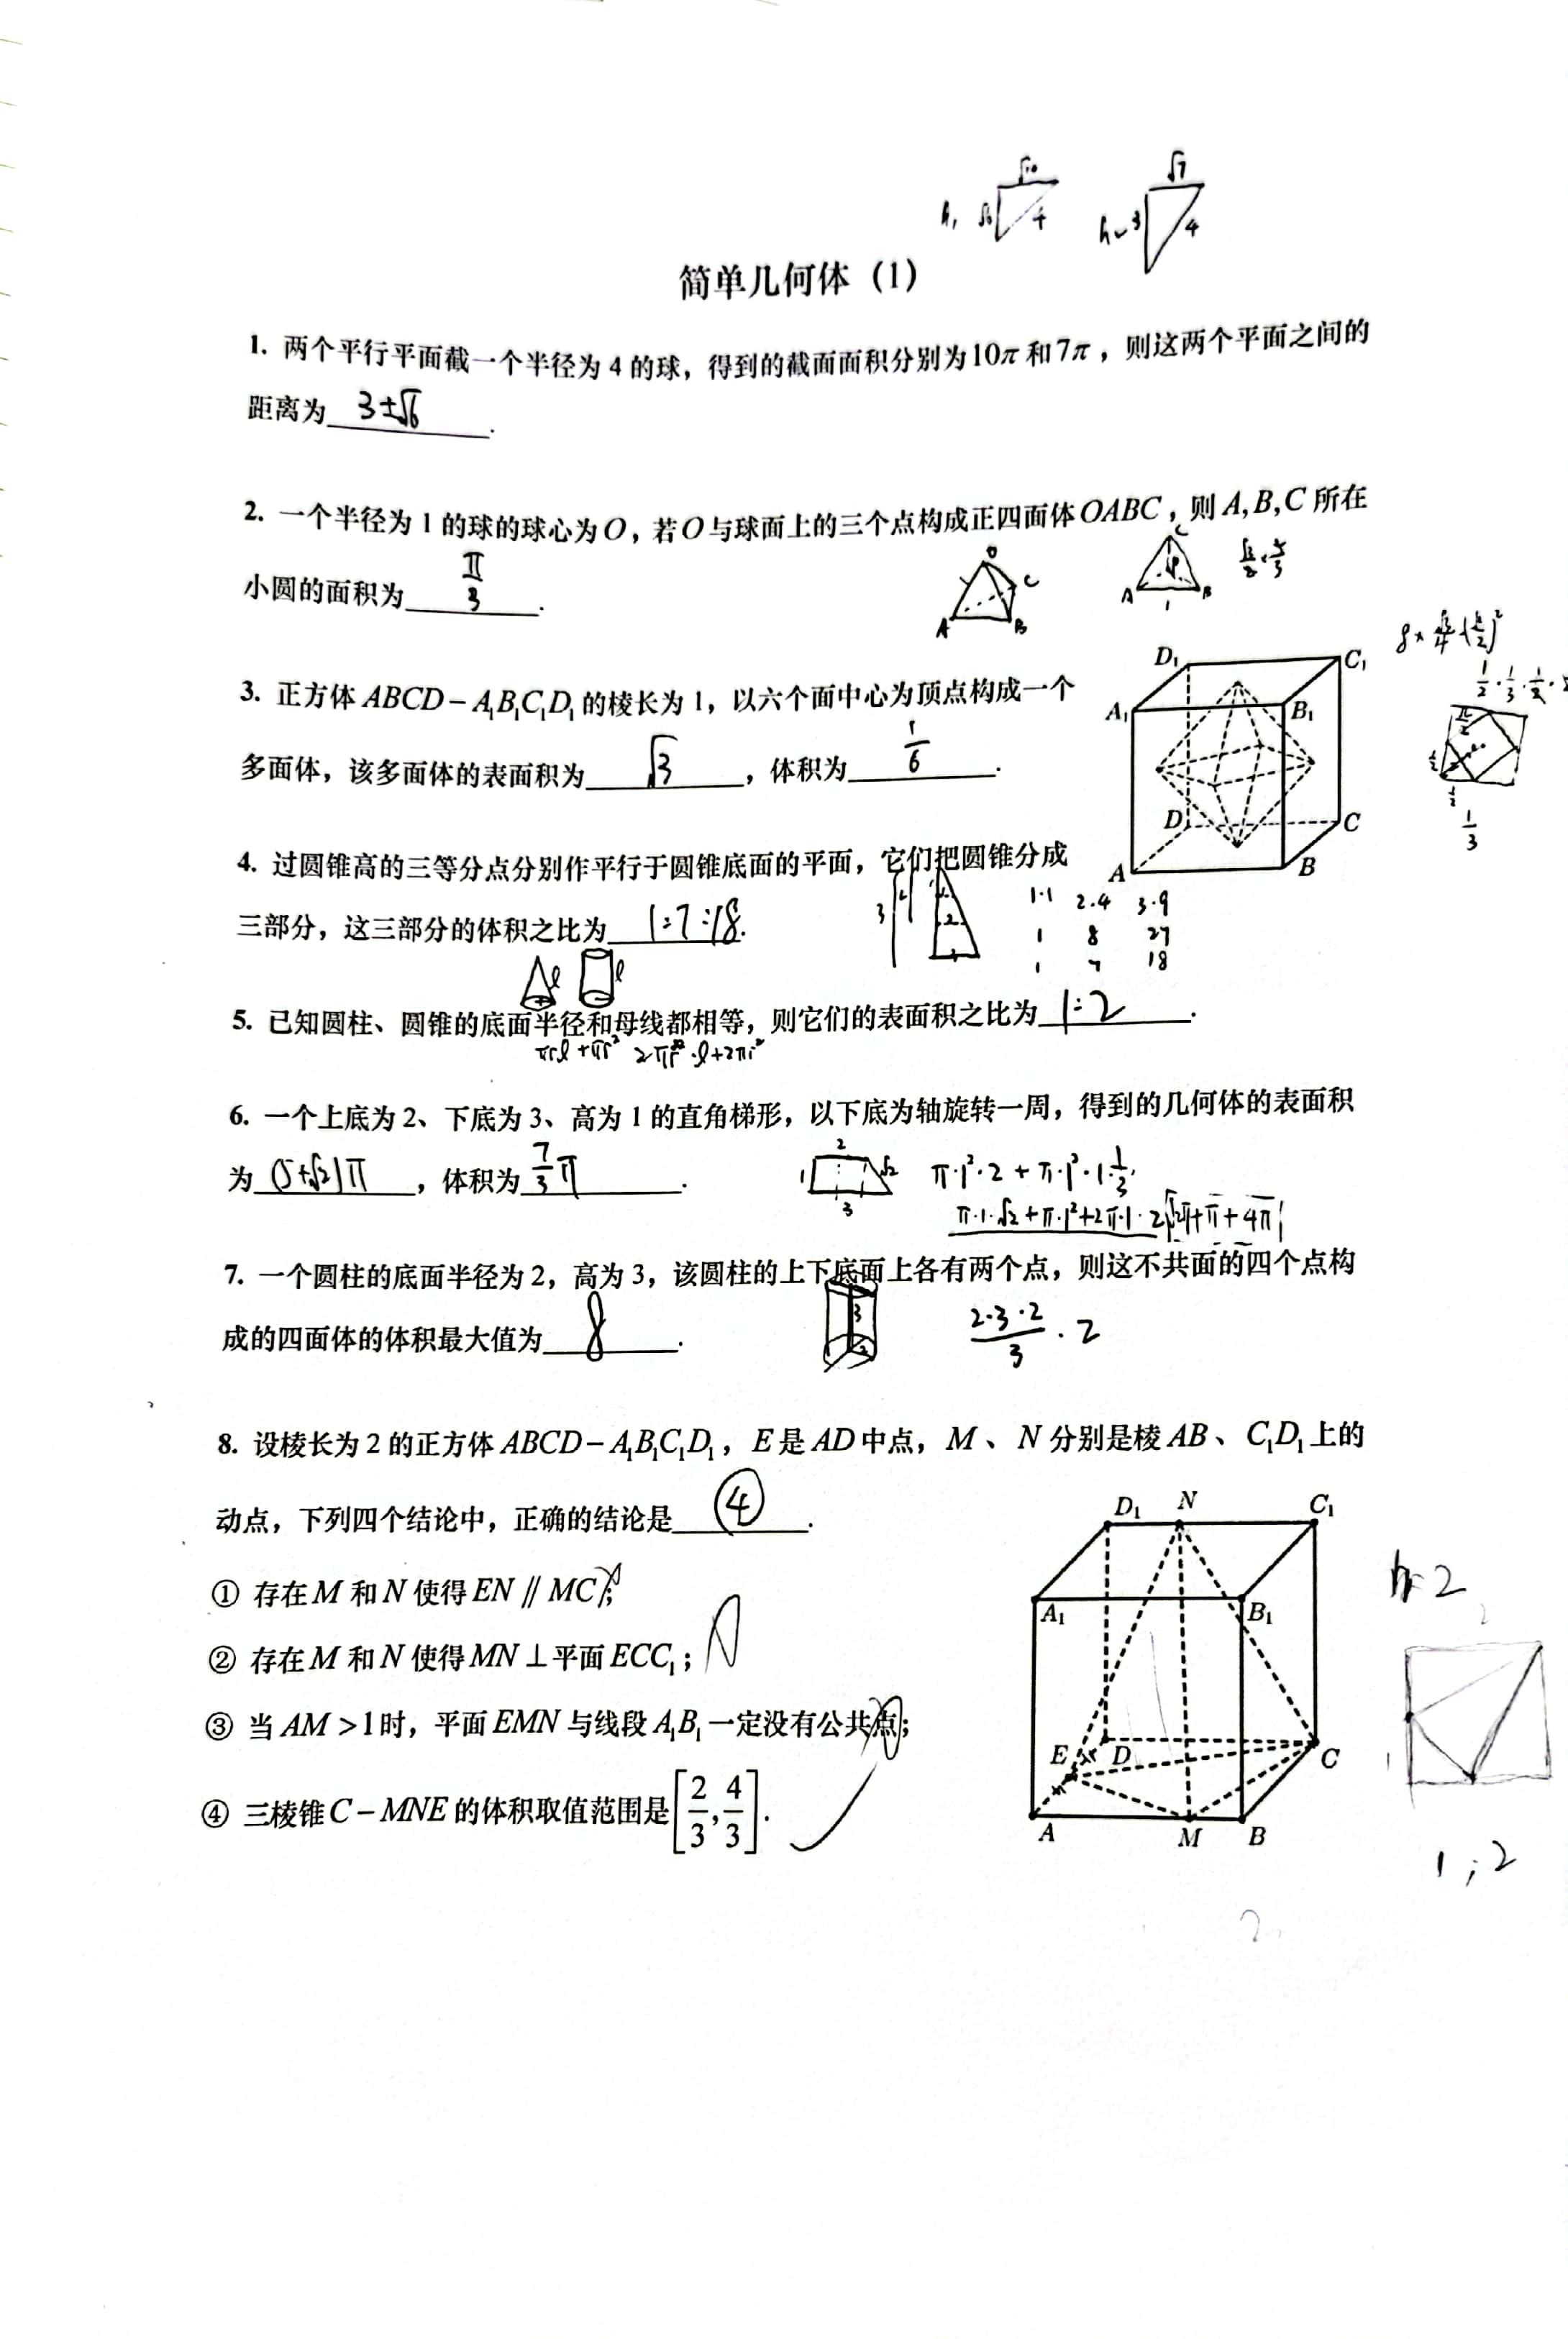 √10 √7
h₁ √6 4 h₂ 3 4
简单几何体（1）
1. 两个平行平面截一个半径为 4 的球，得到的截面面积分别为10π和7π，则这两个平面之间的
距离为 3±√6 .
2. 一个半径为 1 的球的球心为O，若O与球面上的三个点构成正四面体OABC，则 A,B,C 所在
小圆的面积为 π/3 .
O C A B
C A B 1
3. 正方体 ABCD－A₁B₁C₁D₁ 的棱长为 1，以六个面中心为顶点构成一个
多面体，该多面体的表面积为 √3 ，体积为 1/6 .
D₁ C₁
A₁ B₁
D C
A B
1/3
4. 过圆锥高的三等分点分别作平行于圆锥底面的平面，它们把圆锥分成
三部分，这三部分的体积之比为 1:7:18 .
1·1 2·4 3·9
1 8 27
1 7 18
l l
5. 已知圆柱、圆锥的底面半径和母线都相等，则它们的表面积之比为 1:2 .
πrl+πr²
6. 一个上底为 2、下底为 3、高为 1 的直角梯形，以下底为轴旋转一周，得到的几何体的表面积
为 (5+√2)π ，体积为 7/3 π .
2 1 √2 3
π·1²·2+π·1²·1·1/3
π·1·√2+π·1²+2π·1·2 √2π+π+4π
7. 一个圆柱的底面半径为 2，高为 3，该圆柱的上下底面上各有两个点，则这不共面的四个点构
成的四面体的体积最大值为 8 .
3 2
2·3·2/3 ·2
8. 设棱长为 2 的正方体 ABCD－A₁B₁C₁D₁，E 是 AD 中点，M、N 分别是棱 AB、C₁D₁ 上的
动点，下列四个结论中，正确的结论是 ④ .
① 存在 M 和 N 使得 EN ∥ MC；
② 存在 M 和 N 使得 MN ⊥ 平面 ECC₁；
③ 当 AM >1 时，平面 EMN 与线段 A₁B₁ 一定没有公共点；
④ 三棱锥 C－MNE 的体积取值范围是[2/3,4/3].
D₁ N C₁
A₁ B₁
E D C
A M B
h=2
2
1
1；2
2